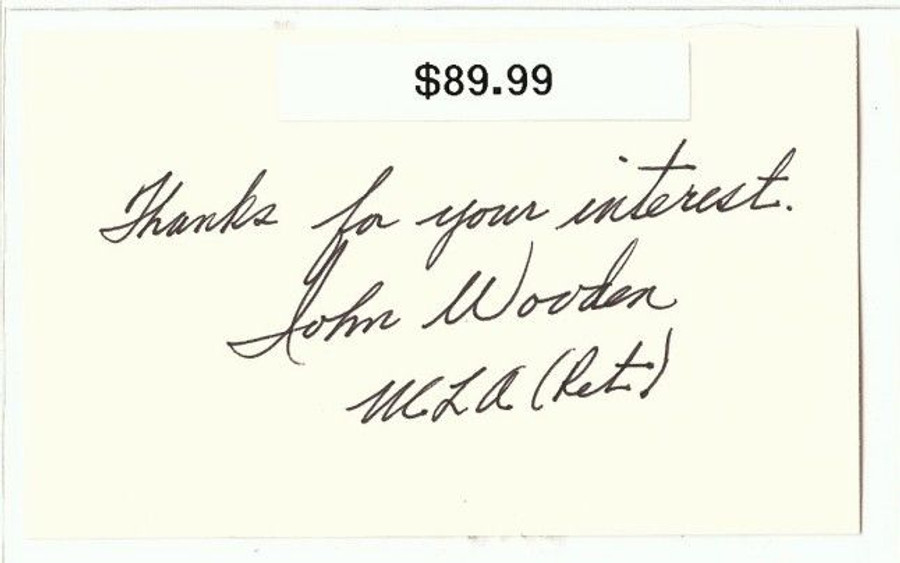 $89.99
Thanks for your interest.
John Wooden
UCLA (Ret.)